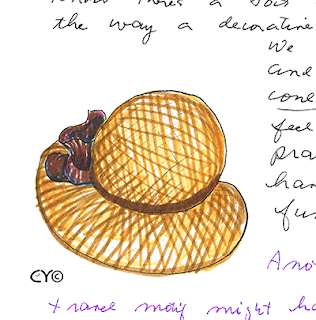 the way a decorative
We
and
cone
feel
pra
han
fus
CY©
Ano
travel motif might ha